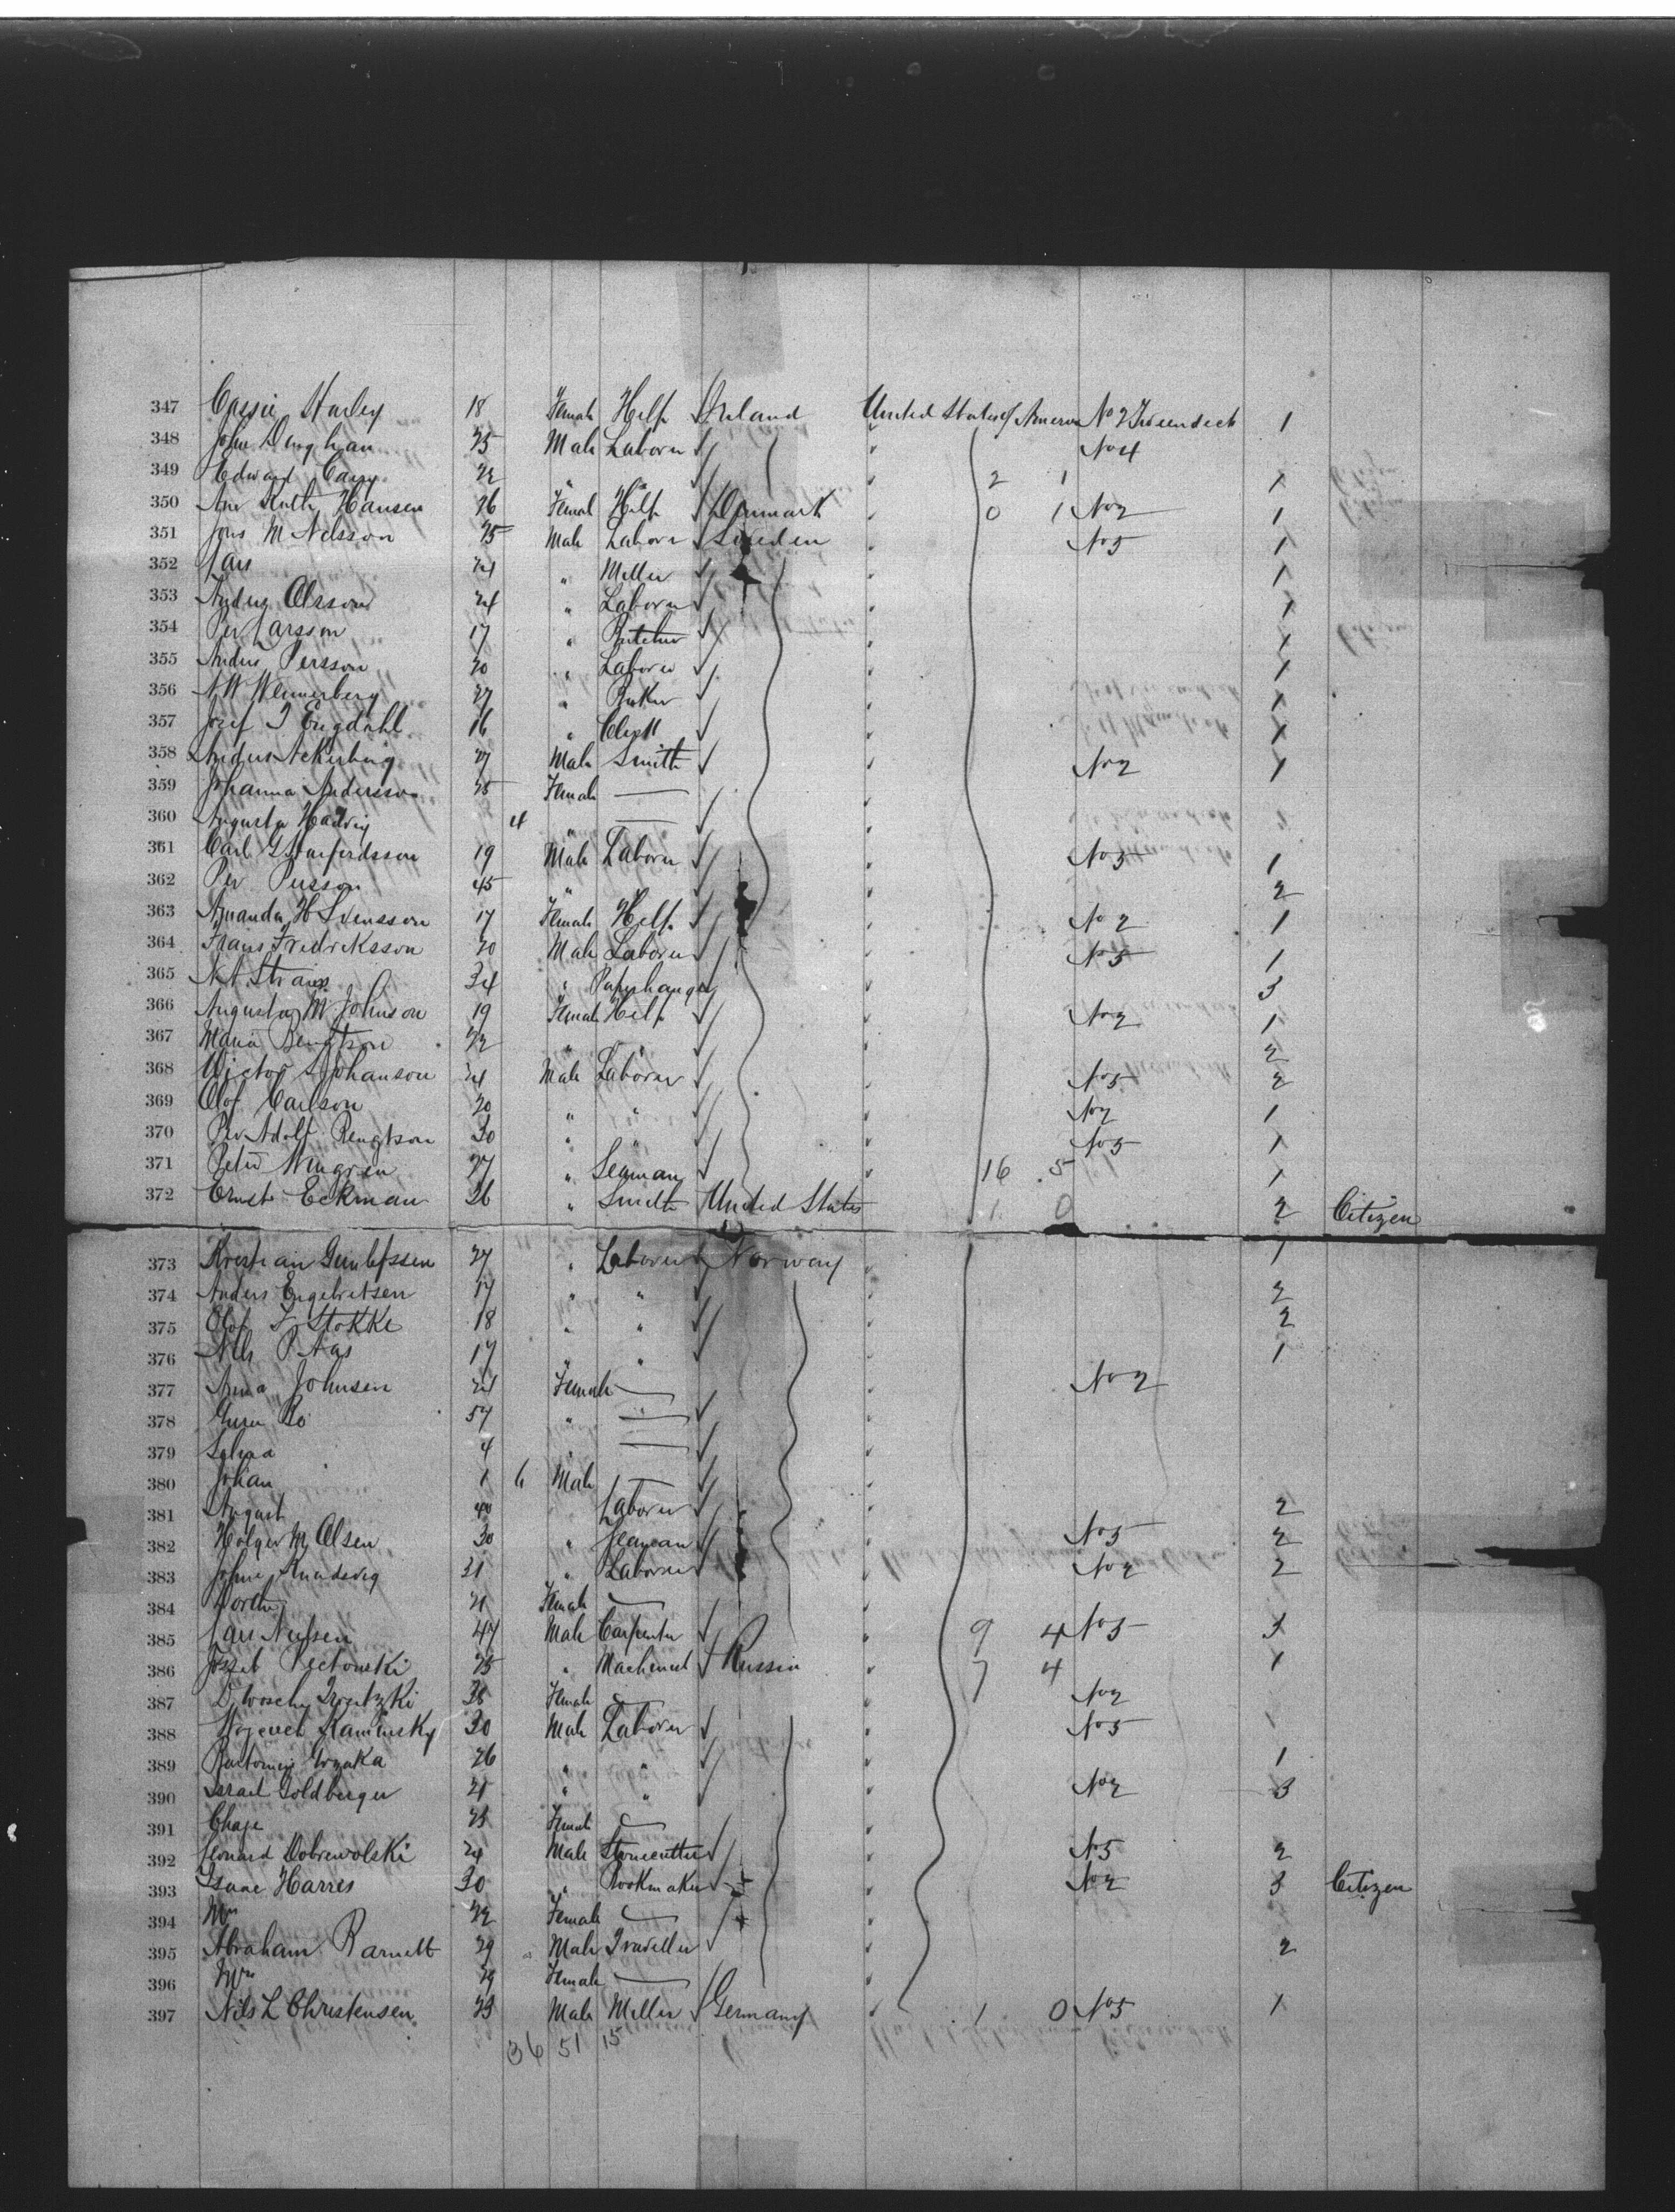 347 Cassie Harley 18 Female Help Ireland United States of America No 2 Tweendeck 1
348 John Deighan 25 Male Laborer " No 4
349 Edward Carey 22 " " " 2 1 1
350 Ane Kath Hansen 26 Female Help Denmark " 0 1 No 2 1
351 Jons M Nelsson 25 Male Laborer Sweden " No 5 1
352 Lars 24 " Miller " 1
353 Anders Olsson 24 " Laborer " 1
354 Per Larsson 17 " Butcher " 1
355 Anders Persson 20 " Laborer " 1
356 A W Wennerberg 27 " Baker " 1
357 Josef T Engdahl 16 " Clerk " 1
358 Anders Akerberg 27 Male Smith " No 2 1
359 Johanna Andersson 25 Female — "
360 Augusta Hedvig 4 " — "
361 Carl G 19 Male Laborer " No 5 1
362 Per Persson 45 " " 2
363 Amanda H Svensson 17 Female Help " No 2 1
364 Frans Fredriksson 20 Male Laborer " No 5 1
365 N A Strauss 34 " Paperhanger " 3
366 Augusta M Johnson 19 Female Help " No 2 1
367 Maria Bengtson 22 " " " 2
368 Wictor S Johanson 24 Male Laborer " No 5 2
369 Olof Carlson 20 " " " No 2 1
370 Per Adolf Bengtson 30 " " " No 5 1
371 Peter 27 " Seaman " 16 5 1
372 Ernst Eckman 26 " Smith United States 1 0 2 Citizen
373 Kristian Gunlefssen 27 " Laborer Norway " 1
374 Anders Engebretsen 17 " " " 2
375 Olof T Stokke 18 " " " 2
376 Nils P Aas 17 " " " 1
377 Anna Johnsen 24 Female — " No 2
378 Bo 57 " — "
379 4 " — "
380 Johan 1 6 Male — "
381 August 40 Laborer " 2
382 Holger M Olsen 30 " Seaman " No 5 2
383 John 31 " Laborer " No 2 2
384 Dorthe 21 Female — "
385 Lars Nielsen 47 Male Carpenter " 9 4 No 5 3
386 Jozeb 25 " Machinest Russia " 7 4 1
387 38 Female — " No 2
388 Kaminsky 30 Male Laborer " No 5 1
389 26 " " " 1
390 Israel Goldberger 21 " " " No 2 3
391 Chaje 23 Female — "
392 Leonard Dobrewolski 24 Male Stonecutter " No 5 2
393 Isaac Harris 30 " Bookmaker " No 2 3 Citizen
394 Mrs 22 Female — "
395 Abraham Barnett 29 " Male Traveller " 2
396 Mrs 29 Female — "
397 Nils L Christensen 23 Male Miller Germany " 1 0 No 5 1
36 51 15